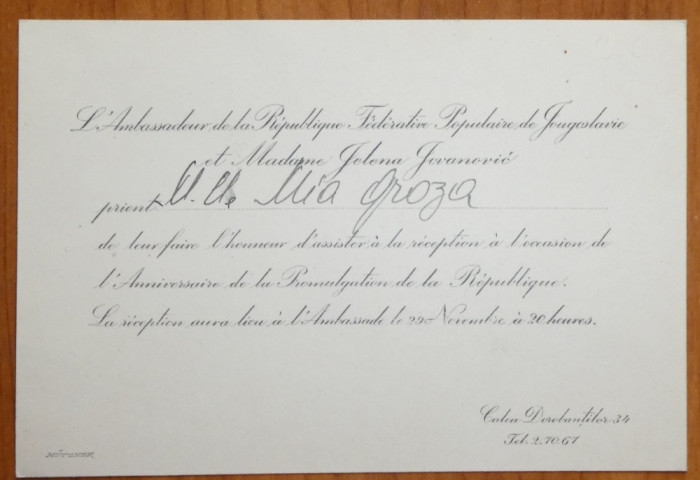 L'Ambassadeur de la République Fédérative Populaire de Yougoslavie
et Madame Jelena Jovanović
prient M.lle Mia Groza
de leur faire l'honneur d'assister à la réception à l'occasion de
l'Anniversaire de la Promulgation de la République.
La réception aura lieu à l'Ambassade le 29 Novembre à 20 heures.
Calea Dorobanților 34
Tel. 2.70.67